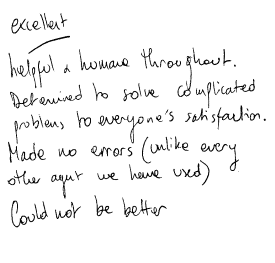 excellent
helpful & humane throughout.
Determined to solve complicated
problems to everyone's satisfaction.
Made no errors (unlike every
other agent we have used)
Could not be better